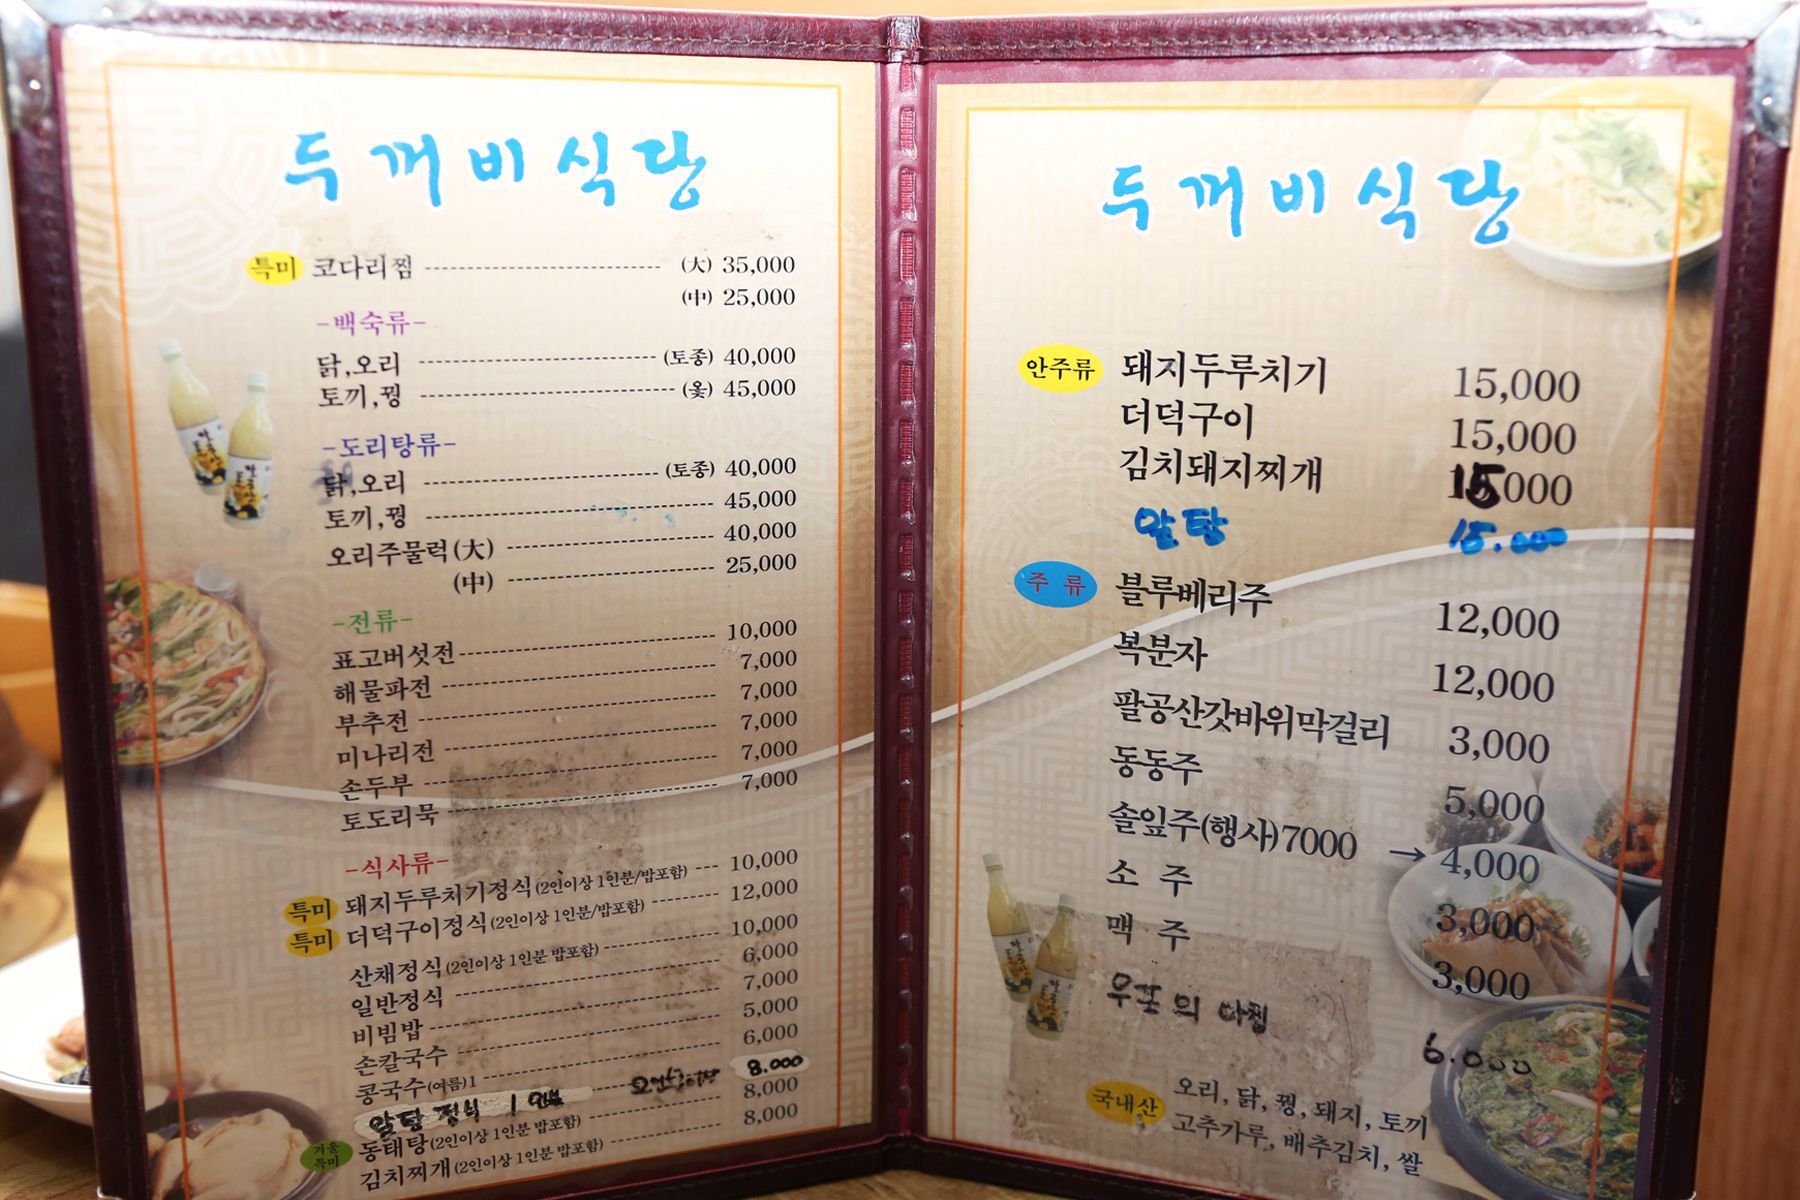 두꺼비식당
특미 코다리찜 (大) 35,000
(中) 25,000
-백숙류-
닭,오리 (토종) 40,000
토끼,꿩 (옻) 45,000
-도리탕류-
닭,오리 (토종) 40,000
토끼,꿩 45,000
오리주물럭(大) 40,000
(中) 25,000
-전류-
표고버섯전 10,000
해물파전 7,000
부추전 7,000
미나리전 7,000
손두부 7,000
토도리묵 7,000
-식사류-
특미 돼지두루치기정식(2인이상 1인분/밥포함) 10,000
특미 더덕구이정식(2인이상 1인분/밥포함) 12,000
산채정식(2인이상 1인분 밥포함) 10,000
일반정식 6,000
비빔밥 7,000
손칼국수 5,000
콩국수(여름)1 6,000
알탕 정식 8.000
겨울특미 동태탕(2인이상 1인분 밥포함) 8,000
김치찌개(2인이상 1인분 밥포함) 8,000
두꺼비식당
안주류 돼지두루치기 15,000
더덕구이 15,000
김치돼지찌개 15,000
알탕 15.000
주류 블루베리주 12,000
복분자 12,000
팔공산갓바위막걸리 3,000
동동주 5,000
솔잎주(행사)7000 → 4,000
소 주 3,000
맥 주 3,000
우포의 아침 6.000
국내산 오리, 닭, 꿩, 돼지, 토끼
고추가루, 배추김치, 쌀